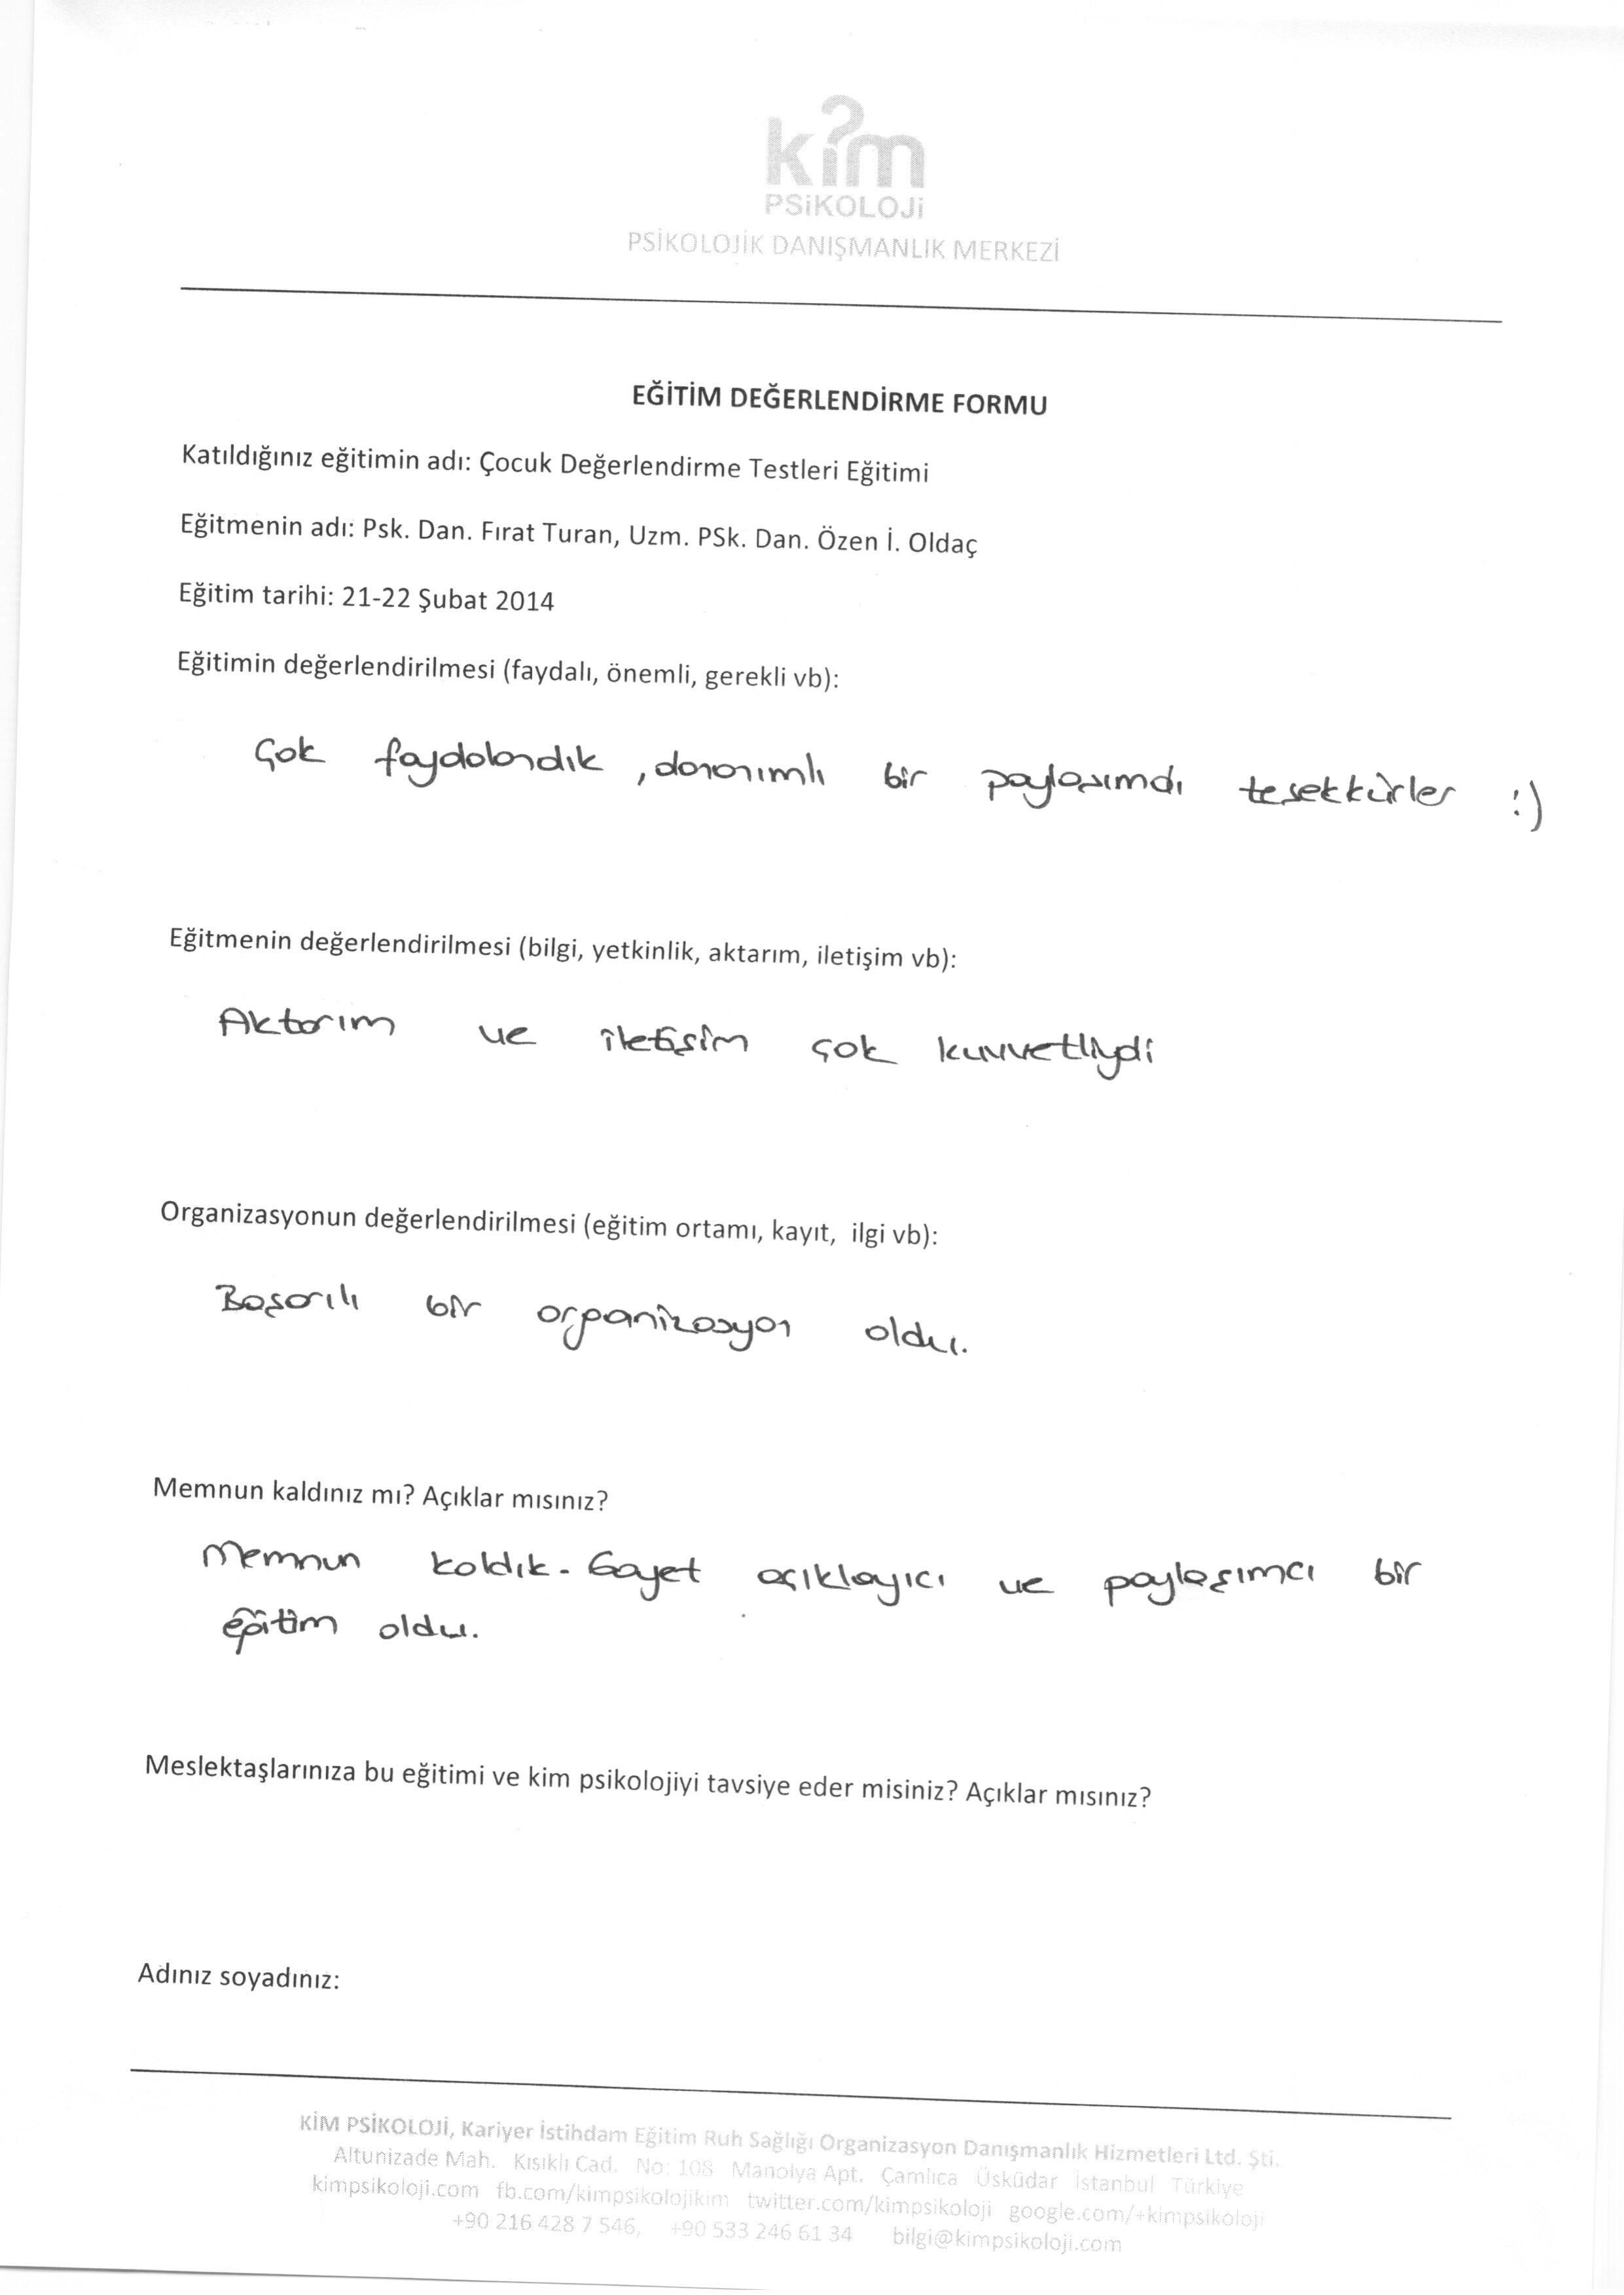 kim
PSiKOLOJi
PSİKOLOJİK DANIŞMANLIK MERKEZİ
EĞİTİM DEĞERLENDİRME FORMU
Katıldığınız eğitimin adı: Çocuk Değerlendirme Testleri Eğitimi
Eğitmenin adı: Psk. Dan. Fırat Turan, Uzm. PSk. Dan. Özen İ. Oldaç
Eğitim tarihi: 21-22 Şubat 2014
Eğitimin değerlendirilmesi (faydalı, önemli, gerekli vb):
Çok faydalandık, donanımlı bir paylaşımdı teşekkürler :)
Eğitmenin değerlendirilmesi (bilgi, yetkinlik, aktarım, iletişim vb):
Aktarım ve iletişim çok kuvvetliydi
Organizasyonun değerlendirilmesi (eğitim ortamı, kayıt, ilgi vb):
Başarılı bir organizasyon oldu.
Memnun kaldınız mı? Açıklar mısınız?
Memnun kaldık. Gayet açıklayıcı ve paylaşımcı bir
eğitim oldu.
Meslektaşlarınıza bu eğitimi ve kim psikolojiyi tavsiye eder misiniz? Açıklar mısınız?
Adınız soyadınız:
KİM PSİKOLOJİ, Kariyer İstihdam Eğitim Ruh Sağlığı Organizasyon Danışmanlık Hizmetleri Ltd. Şti.
Altunizade Mah. Kısıklı Cad. No: 108 Manolya Apt. Çamlıca Üsküdar İstanbul Türkiye
kimpsikoloji.com fb.com/kimpsikolojikim twitter.com/kimpsikoloji google.com/+kimpsikoloji
+90 216 428 7 546, +90 533 246 61 34 bilgi@kimpsikoloji.com